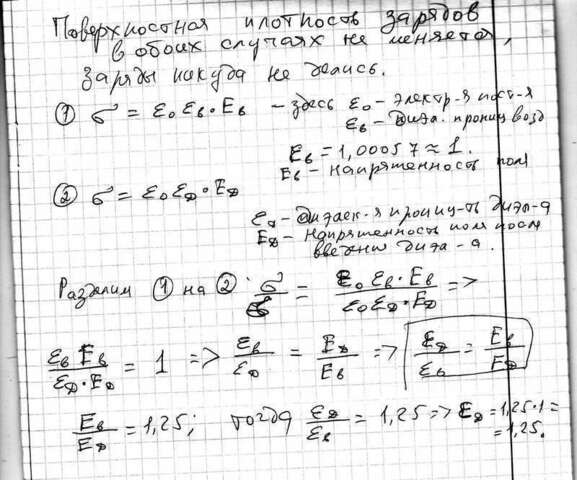 Поверхностная плотность зарядов
в обоих случаях не меняется,
заряды никуда не делись.
① σ = ε₀ εв · Eв – здесь ε₀ – электр-я пост-я
εв – диэл. прониц возд
εв = 1,00057 ≈ 1.
Eв – напряженность поля
② σ = ε₀ εд · Eд
εд – диэлек-я прониц-ть диэл-а
Eд – напряженность поля после
введения диэл-а.
Разделим ① на ② σ/σ = ε₀ εв · Eв / ε₀ εд · Eд =>
εв Eв / εд · Eд = 1 => εв/εд = Eд/Eв => εд/εв = Eв/Eд
Eв/Eд = 1,25; тогда εд/εв = 1,25 => εд = 1,25 · 1 =
= 1,25.